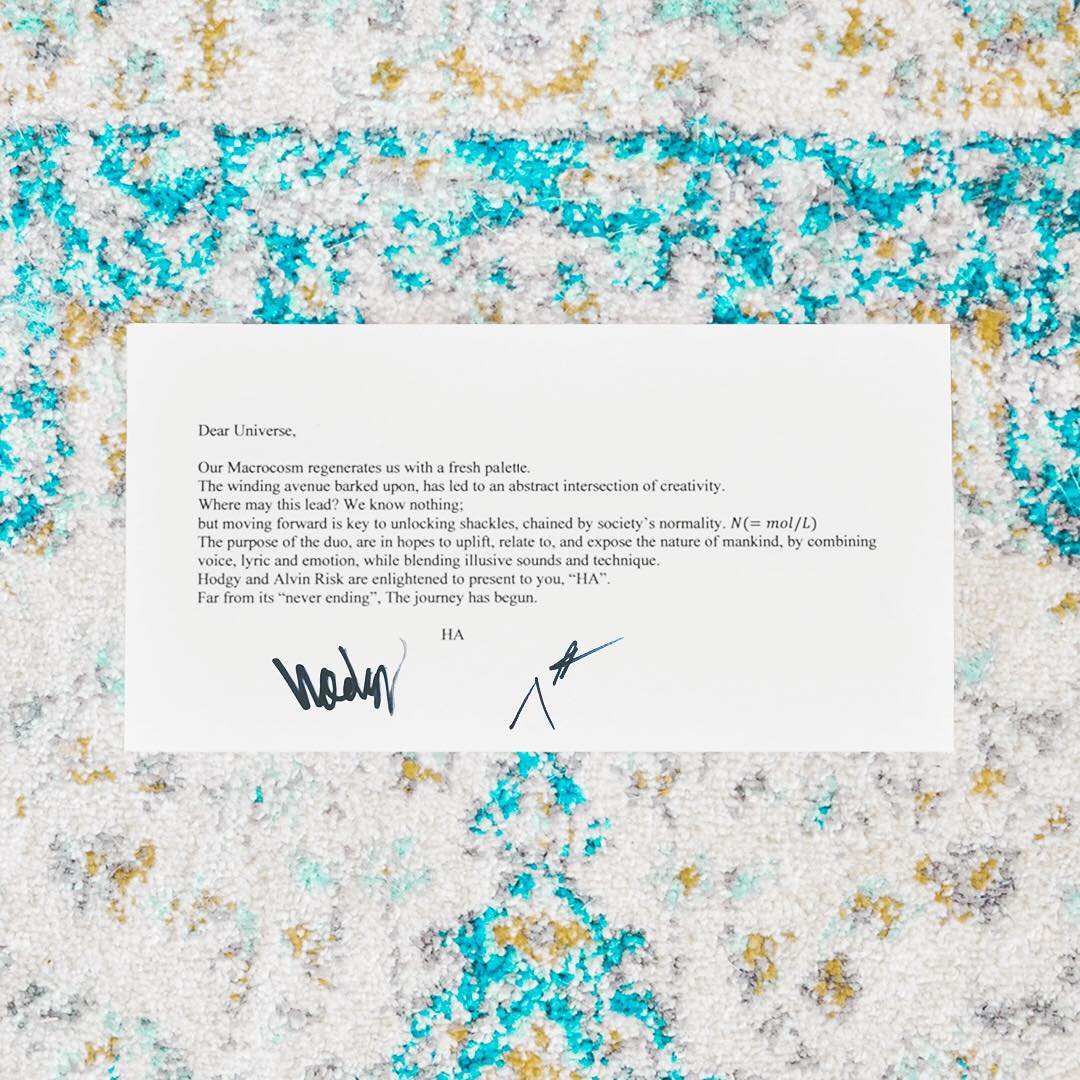 Dear Universe,
Our Macrocosm regenerates us with a fresh palette.
The winding avenue barked upon, has led to an abstract intersection of creativity.
Where may this lead? We know nothing;
but moving forward is key to unlocking shackles, chained by society's normality. N(= mol/L)
The purpose of the duo, are in hopes to uplift, relate to, and expose the nature of mankind, by combining
voice, lyric and emotion, while blending illusive sounds and technique.
Hodgy and Alvin Risk are enlightened to present to you, “HA”.
Far from its “never ending”, The journey has begun.
HA
Hodgy